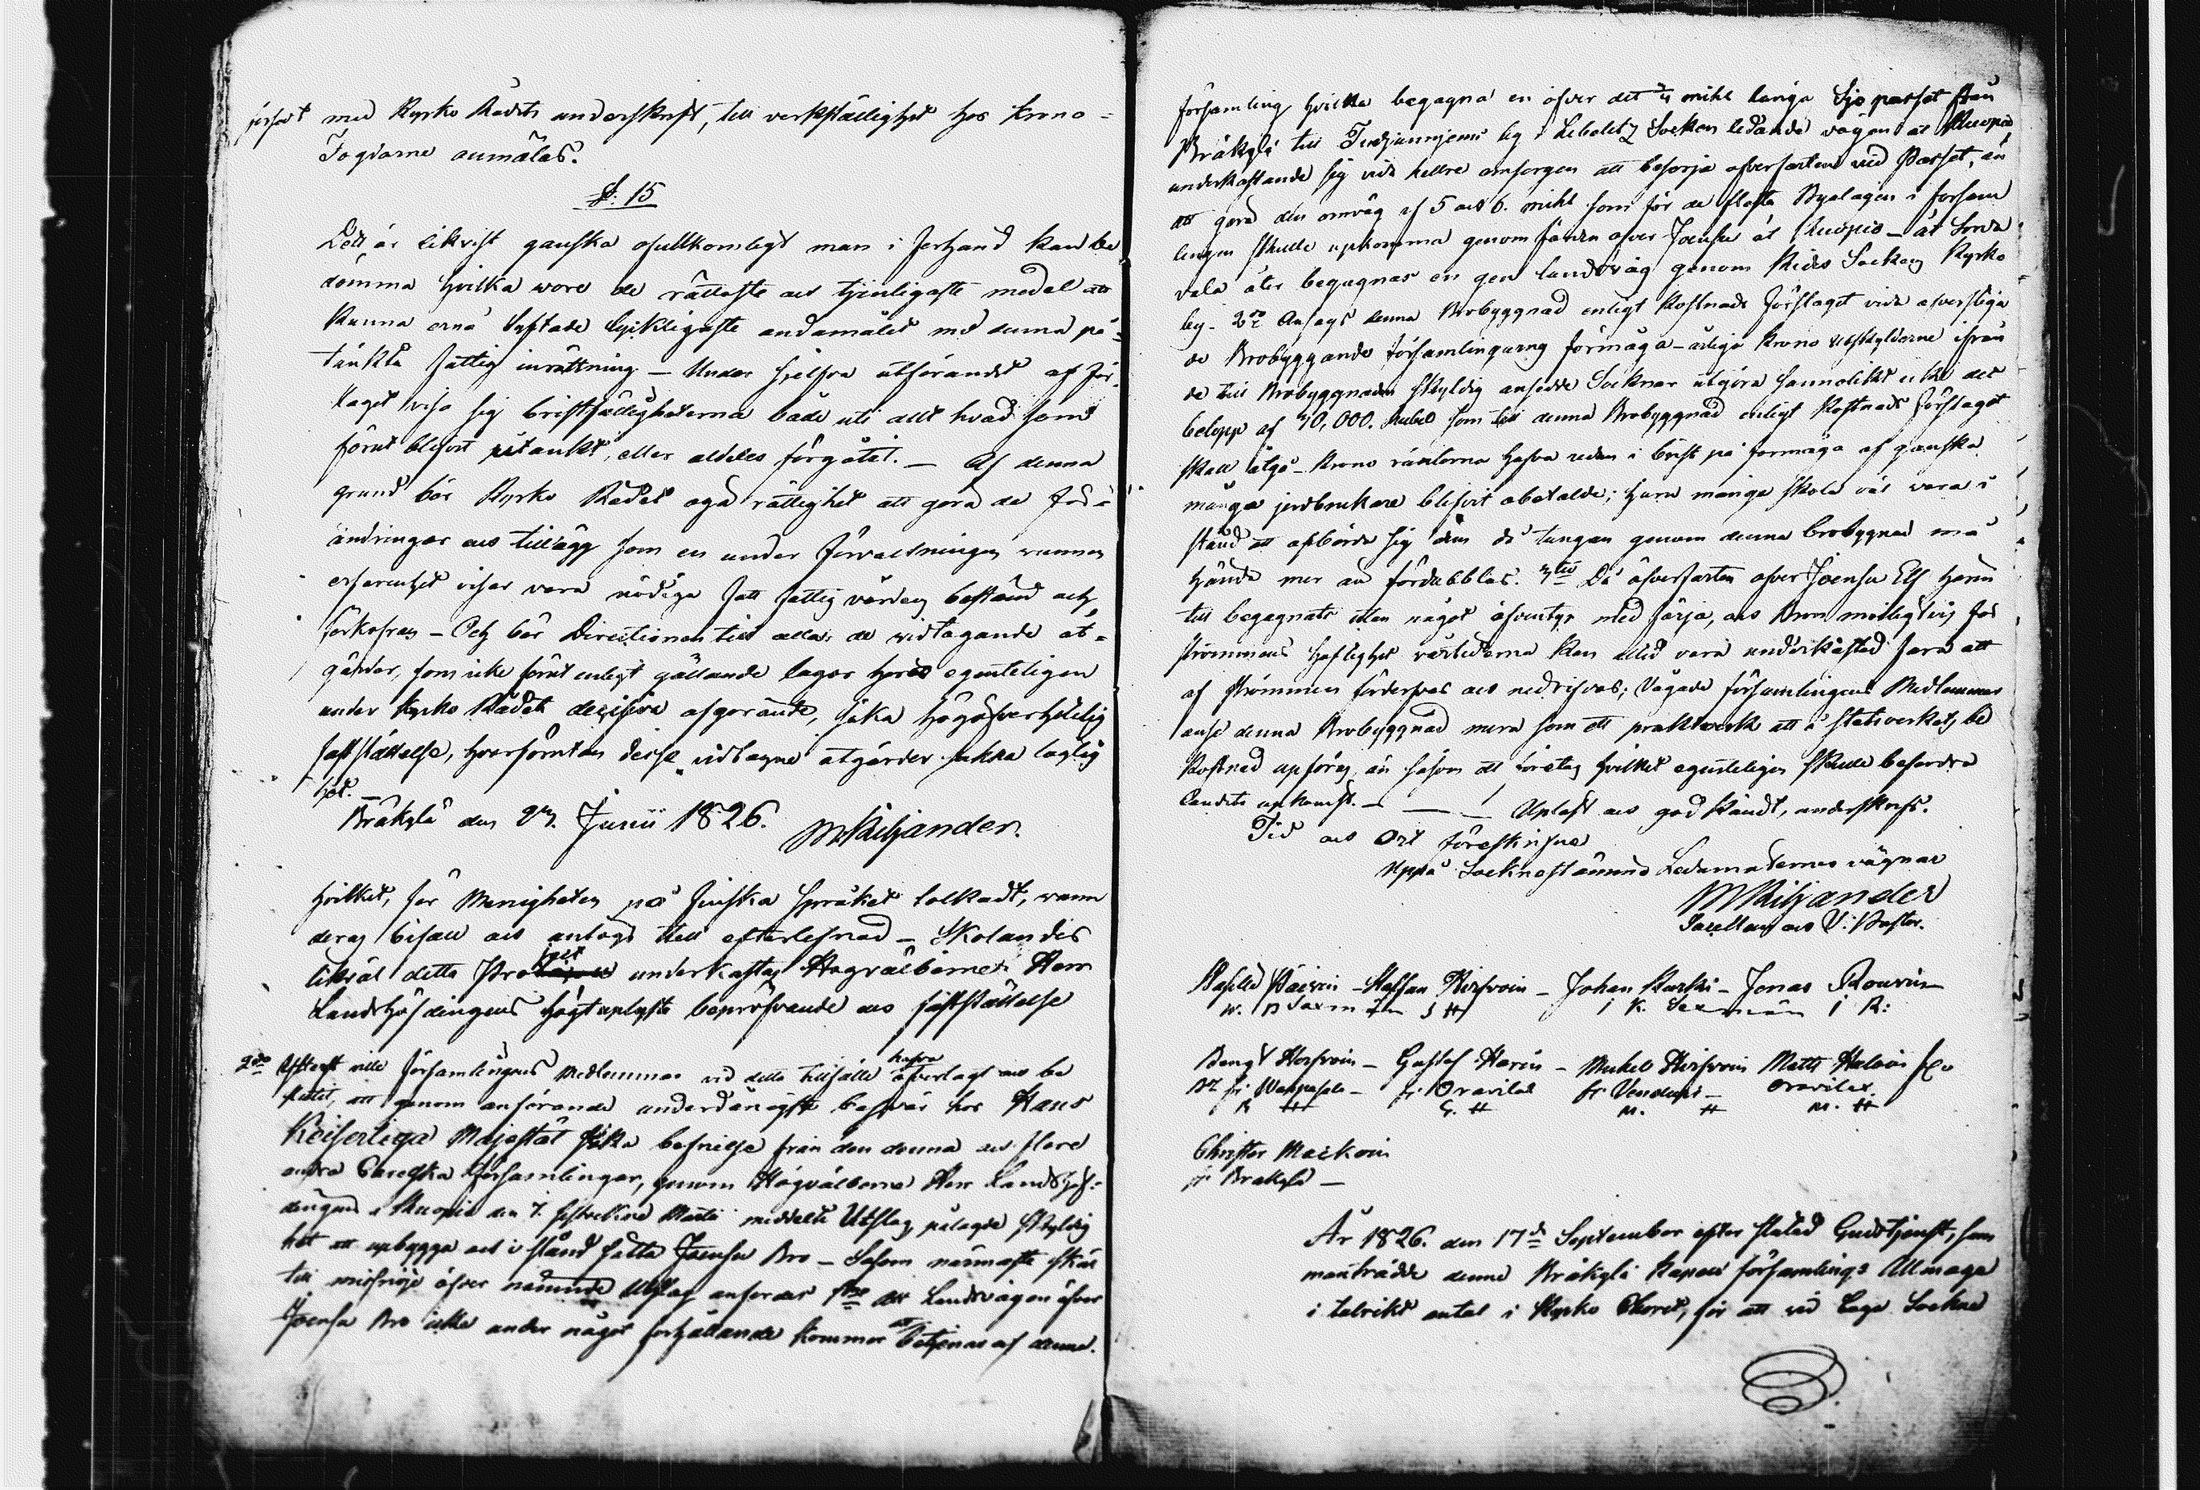 med Kyrko Rådets underskrift, till verkställighet hos Krono-
Fogdarne anmälas.
§: 15
Det är likvist ganska ofullkomligt man i förhand kan be
dömma hvilka wore de rättaste och tjenligaste medel att
kunna ernå syftade lyckligaste andamålet med denna på-
tänkta fattig inrättning — Under sjelfva utförandet af för-
slaget visa sig bristfälligheterna både uti allt hvad som
förut blifvit påtänkt, eller aldeles förgätit. — Af denna
grund bör Kyrko Rådet äga rättighet att göra de för-
ändringar och tillägg som en under förvaltningen vunnen
erfarenhet visar vara nödiga
— Och bör Directionen till alla de vidtagande åt-
gärder, som icke förut enligt gällande lagar höra egenteligen
under Kyrko Rådets afgörande, söka
fastställelse, hvarförutan desse vidtagne åtgärder sakna laglig
het. —
Bråkylä den 27. Junii 1826. MKiljander.
Hvilket, för Menigheten på Finska språket tolkadt, wann
deras bifall och antogs till efterlefnad — Skolandes
likväl detta underkastas Högvälborne Herr
Landshöfdingens högtuplyste bepröfvande och fastställelse
2do ville Församlingens Medlemmar vid detta tillfälle hafva öfverlagt och be
slutit, att genom anförande underdånigste besvär hos Hans
Keiserliga Majestät söka befrielse från den denna och flere
andra Församlingar, genom Högvälborne Herr Landshöf-
dingens i Kuopio den 7. sistvekne Martii meddelte Utslag pålagde skyldig
het att upbygga och i stånd sätta Joensu Bro — Såsom närmaste skäl
till missnöje öfver nämnde Utslag anföres 1mo att Landsvägen öfver
Joensu Bro icke under något förhållande kommer att betjenas af denna
församling hvilka begagna en öfver det 1/4 mihl långa Sjö passet från
Bråkylä till i Libelitz Socken ledande vägen åt Kuopio
underkastande sig vida hellre omsorgen att besörja öfverfarten vid Passet, än
att göra den omväg af 5 och 6. mihl som för de flesta Byalagen i försam
lingen skulle upkomma genom färden öfver Joensu åt Kuopio — åt Sorda
vala åter begagnas en gen landsväg genom Kides Sockens Kyrko
by. 2do Anses denna Brobyggnad enligt Kostnads Förslaget vida öfverstiga
de Brobyggande församlingarnas förmåga — årliga Krono utskylderne ifrån
de till Brobyggnaden skyldig ansedde Socknar utgöra sannolikt icke det
belopp af 70,000. Rubel som till denna Brobyggnad enligt Kostnads Förslaget
skall åtgå — Krono räntorna hafva redan i brist på förmåga af ganska
många jordbrukare blifvit obetalde; huru många skola väl vara i
stånd att upbörda sig dem då tungan genom denna brobygnad må
hända mer än fördubblas. 3tio Då öfverfarten öfver Joensu Elf härin
till begagnats utan något äfventyr med färja, och Bron möjligtvis för
strömmens häftighet vårtiderna kan alltid vara underkastad fara att
af strömmen förderfvas och nedrifvas; Vågade församlingens Medlemmar
anse denna Brobyggnad mera som ett praktverk att å Statsverkets be
kostnad upföras, än såsom ett företag hvilket egenteligen skulle befordra
Landets upkomst. — — — Uplest och godkändt, underskrefs.
Tid och Ort föreskrifne
Uppå Socknestämmo Ledamöternes vägnar
MKiljander
Sacellan och V: Pastor.
Päivin — Staffan Hirfvoin — Johan Kurki — Jonas Rouvin
Bengt Hirfvoin — Gustaf Harin — Mickel Hirfvoin Matts Haloin
fr. Oravilax fr. Vendens — Oravilax
G. H M. H M. H
Christer Maekoin
fr. Bråkylä —
År 1826. den 17de September efter slutad Gudstjenst, sam
manträdde denne Bråkylä Kapell församlings Allmoge
i talrikt antal i Kyrko Choret, för att vid Laga Sockne